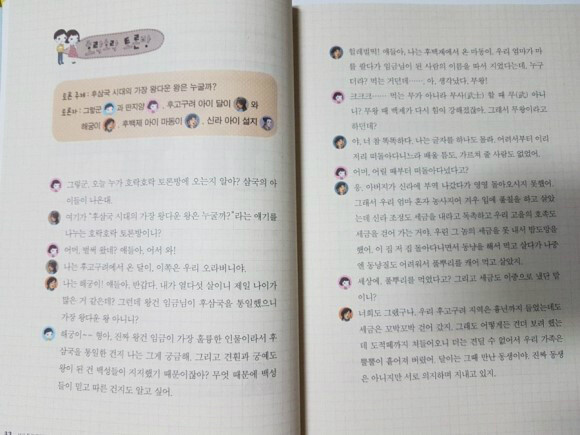 호락호락 토론방
토론 주제 : 후삼국 시대의 가장 왕다운 왕은 누굴까?
토론자 : 그렇군 과 딴지양 , 후고구려 아이 달이 와
해궁이 , 후백제 아이 마동이 , 신라 아이 설지
그렇군, 오늘 누가 호락호락 토론방에 오는지 알아? 삼국의 아
이들이 나온대.
여기가 "후삼국 시대의 가장 왕다운 왕은 누굴까?"라는 얘기를
나누는 호락호락 토론방이니?
어머, 벌써 왔네? 얘들아, 어서 와!
나는 후고구려에서 온 달이, 이쪽은 우리 오라버니야.
나는 해궁이! 얘들아, 반갑다. 내가 열다섯 살이니 제일 나이가
많은 거 같은데? 그런데 왕건 임금님이 후삼국을 통일했으니
가장 왕다운 왕 아니니?
해궁이 형아, 진짜 왕건 임금이 가장 훌륭한 인물이라서 후
삼국을 통일한 건지 나는 그게 궁금해. 그리고 견훤과 궁예도
왕이 된 건 백성들이 지지했기 때문이잖아? 무엇 때문에 백성
들이 믿고 따른 건지도 알고 싶어.
헐레벌떡! 얘들아, 나는 후백제에서 온 마동이, 우리 엄마가 마
를 팔다가 임금님이 된 사람의 이름을 따서 지었다는데, 누구
더라? 먹는 거던데…… 아, 생각났다. 무왕!
크크크…… 먹는 무가 아니라 무사(武士) 할 때 무(武) 아니
니? 무왕 때 백제가 다시 힘이 강해졌잖아. 그래서 무왕이라고
하던데?
야, 너 참 똑똑하다. 나는 글자를 하나도 몰라. 어려서부터 이리
저리 떠돌아다니느라 배울 틈도, 가르쳐 줄 사람도 없었어.
어머, 어릴 때부터 떠돌아다녔다고?
응, 아버지가 신라에 부역 나갔다가 영영 돌아오시지 못했어.
그래서 우리 엄마 혼자 농사지어 겨우 입에 풀칠을 하고 살았
는데 신라 조정도 세금을 내라고 독촉하고 우리 고을의 호족도
세금을 걷어 가는 거야. 두 번 그 놈의 세금을 못 내서 밤도망을
했어. 이 집 저 집 돌아다니면서 동냥을 해서 먹고 살다가 나중
엔 동냥질도 어려워서 풀뿌리를 캐어 먹고 살았지.
세상에, 풀뿌리를 먹었다고? 그리고 세금도 이중으로 냈단 말
이니?
너희도 그랬구나. 우리 후고구려 지역은 흉년까지 들었는데도
세금은 꼬박꼬박 걷어 갔지. 그래도 어떻게든 견뎌 보려 했는
데 도적떼까지 쳐들어오니 더는 견딜 수가 없어서 우리 가족은
뿔뿔이 흩어져 버렸어. 달이는 그때 만난 동생이야. 진짜 동생
은 아니지만 서로 의지하며 지내고 있지.